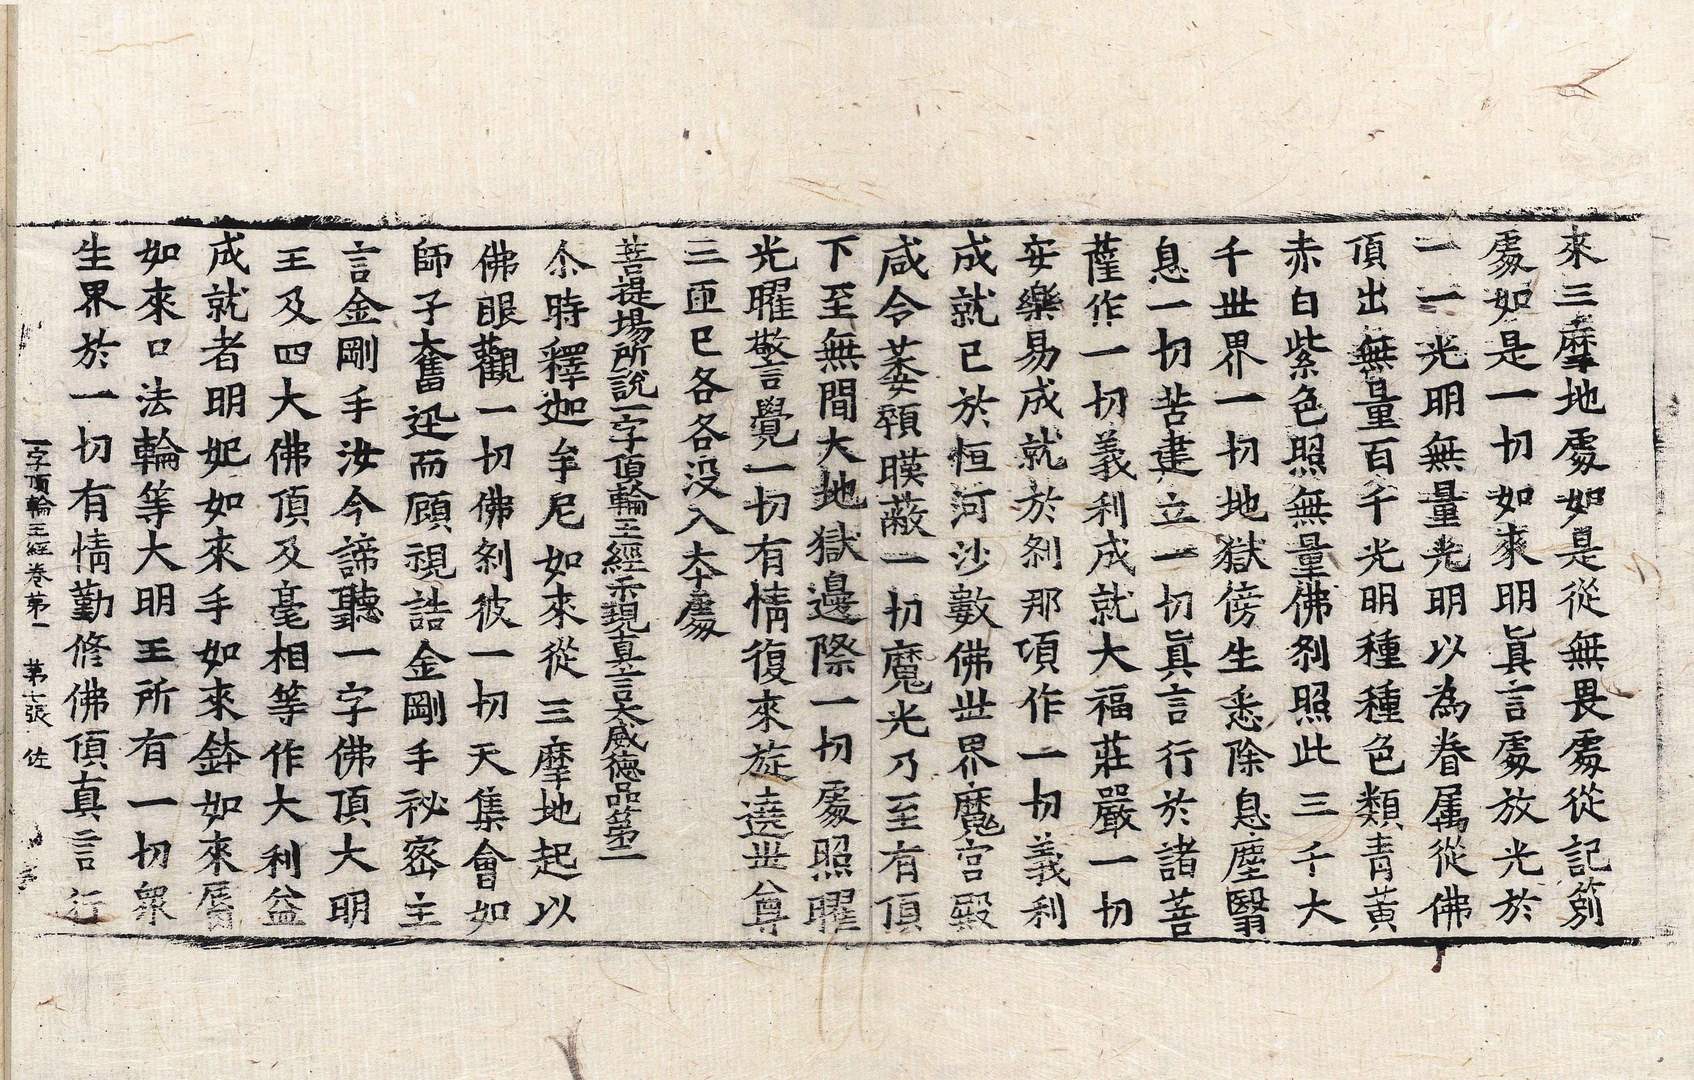 來三摩地處如是從無畏處從記莂
處如是一切如來明眞言處放光於
一一光明無量光明以為眷属從佛
頂出無量百千光明種種色類青黃
赤白紫色照無量佛刹照此三千大
千世界一切地獄傍生悉除息塵翳
息一切苦建立一切眞言行於諸菩
薩作一切義利成就大福莊嚴一切
安樂易成就於刹那頃作一切義利
成就已於恒河沙數佛世界魔宮殿
咸令萎顇暎蔽一切魔光乃至有頂
下至無間大地獄邊際一切處照曜
光曜警覺一切有情復來旋遶世尊
三匝已各各没入本處
菩提場所說一字頂輪王經示現真言大威德品第二
尒時釋迦牟尼如來從三摩地起以
佛眼觀一切佛刹彼一切天集會如
師子奮迅而顧視誥金剛手祕密主
言金剛手汝今諦聽一字佛頂大明
王及四大佛頂及毫相等作大利益
成就者明妃如來手如來鉢如來脣
如來口法輪等大明王所有一切衆
生界於一切有情勤修佛頂真言行
一字頂輪王經卷第一 第七張 佐